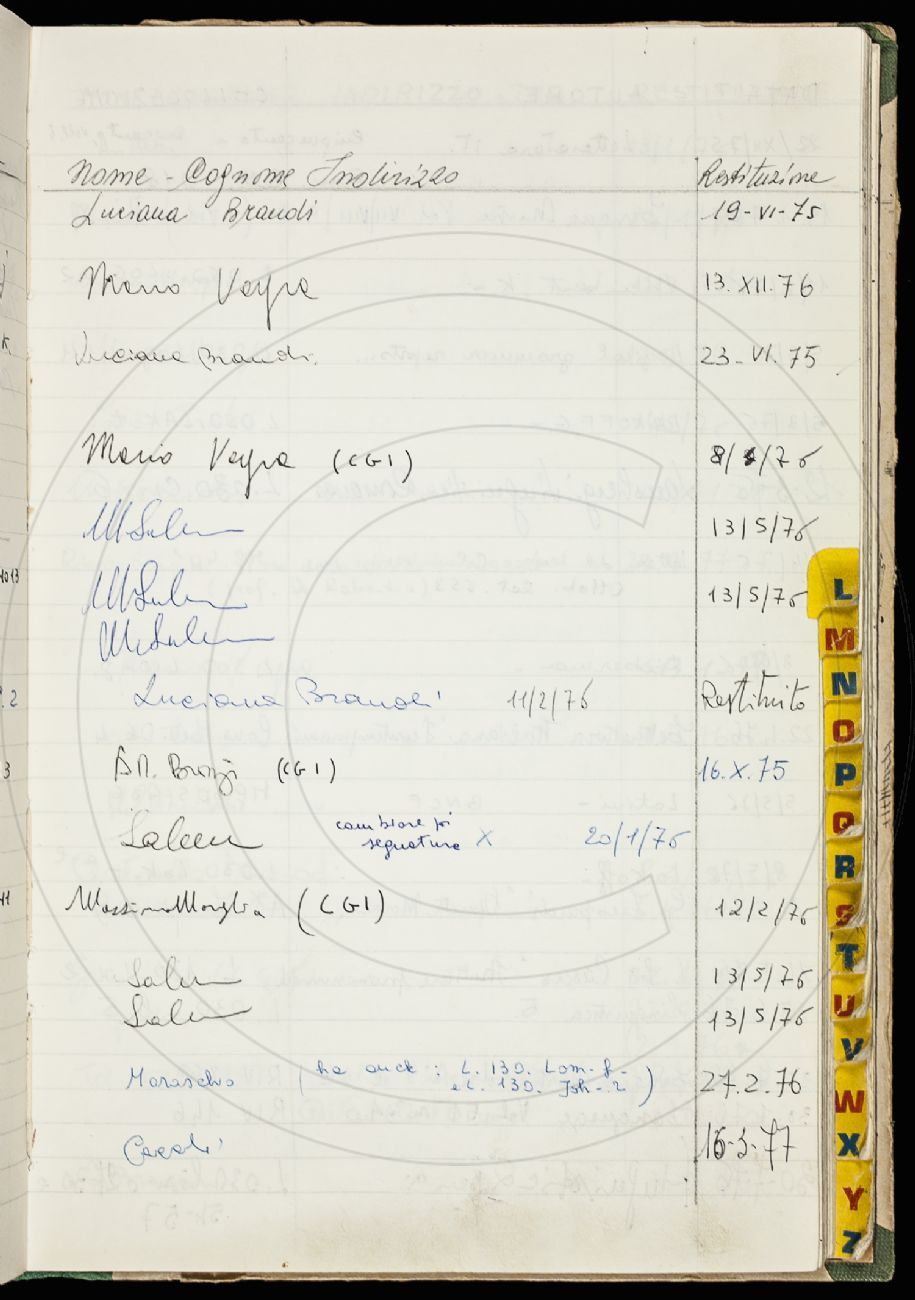 Nome - Cognome Indirizzo Restituzione
Luciana Brandi 19-VI-75
Mario Vayra 13.XII.76
Luciana Brandi. 23-VI.75
Mario Vayra (CGI) 8/ /76
MSalem 13/5/76
MSalem 13/5/76
MSalem
Luciana Brandi 11/2/76 Restituito
(CGI) 16.X.75
Salem cambiare poi
segnatura X 20/1/76
Massimo Moneglia (CGI) 12/2/76
Salem 13/5/76
Salem 13/5/76
Maraschio (ha anche: L.130. Lom.f-
e L.130. ) 27.2.76
16-3-77
L
M
N
O
P
Q
R
S
T
U
V
W
X
Y
Z